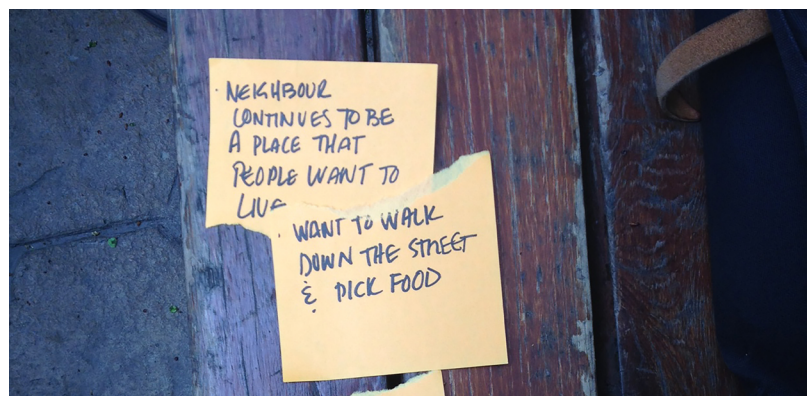 NEIGHBOUR
CONTINUES TO BE
A PLACE THAT
PEOPLE WANT TO
LIVE
WANT TO WALK
DOWN THE STREET
& PICK FOOD